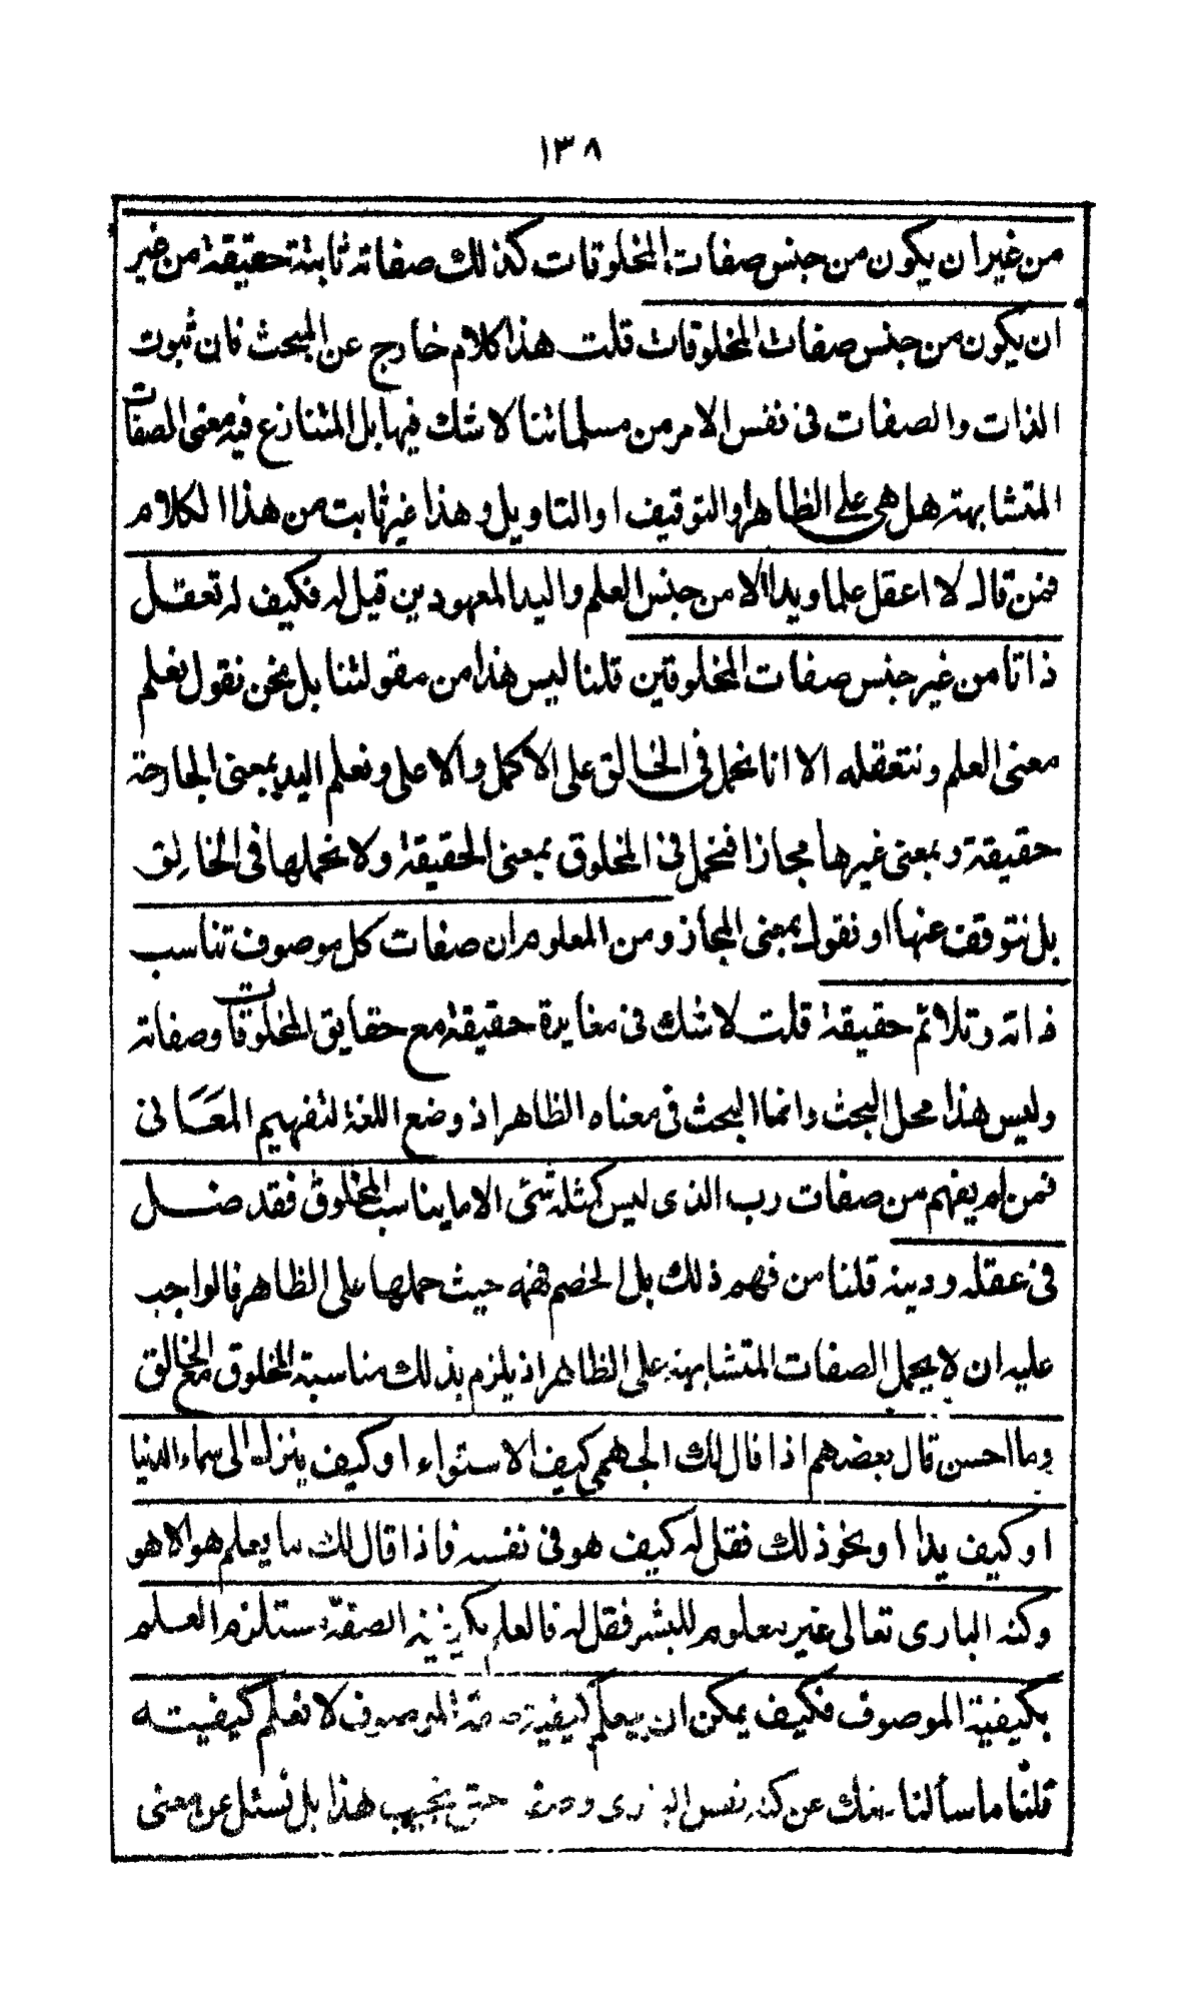 ١٣٨
من غير ان يكون من جنس صفات المخلوقات كذلك صفاته ثابتة حقيقة من غير
ان يكون من جنس صفات المخلوقات قلت هذا كلام خارج عن المبحث فان ثبوت
الذات والصفات فى نفس الامر من مسلماتنا لا شك فيها بل المتنازع فيه معنى الصفات
المتشابهة هل هى على الظاهر او التوقيف او التاويل وهذا غير ثابت من هذا الكلام
فمن قال لا اعقل علما ويدا الا من جنس العلم واليد المعهودين قيل له فكيف له تعقل
ذاتا من غير جنس صفات المخلوقين قلنا ليس هذا من مقولتنا بل نحن نقول نعلم
معنى العلم ونتعقله الا انا نحمل فى الخالق على الاكمل والاعلى ونعلم اليد بمعنى الجارحة
حقيقة وبمعنى غيرها مجازا فنحمل فى المخلوق بمعنى الحقيقة ولا نحملها فى الخالق
بل نتوقف عنها او نقول بمعنى المجاز ومن المعلوم ان صفات كل موصوف تناسب
ذاته وتلائم حقيقة قلت لا شك فى مغايرة حقيقة مع حقايق المخلوقات وصفاته
وليس هذا محل البحث وانما البحث فى معناه الظاهر اذ وضع اللغة لتفهيم المعانى
فمن لم يفهم من صفات رب الذى ليس كمثله شئ الا ما يناسب المخلوق فقد ضل
فى عقله ودينه قلنا من فهم ذلك بل الخصم فهمه حيث حملها على الظاهر فالواجب
عليه ان لا يحمل الصفات المتشابهة على الظاهر اذ يلزم بذلك مناسبة المخلوق مع الخالق
وما احسن قال بعضهم اذا قال لك الجهمى كيف الاستواء او كيف ينزل الى سماء الدنيا
او كيف يدا او نحو ذلك فقل له كيف هو فى نفسه فاذا قال لك ما يعلم هو الا هو
وكنه البارى تعالى غير معلوم للبشر فقل له فالعلم بكيفية الصفة مستلزم العلم
بكيفية الموصوف فكيف يمكن ان يعلم كيفية صفة الموصوف لا نعلم كيفيته
قلنا ما سألنا منك عن كنه نفس البارى وصفة حتى نجيب هذا بل نسئل عن معنى